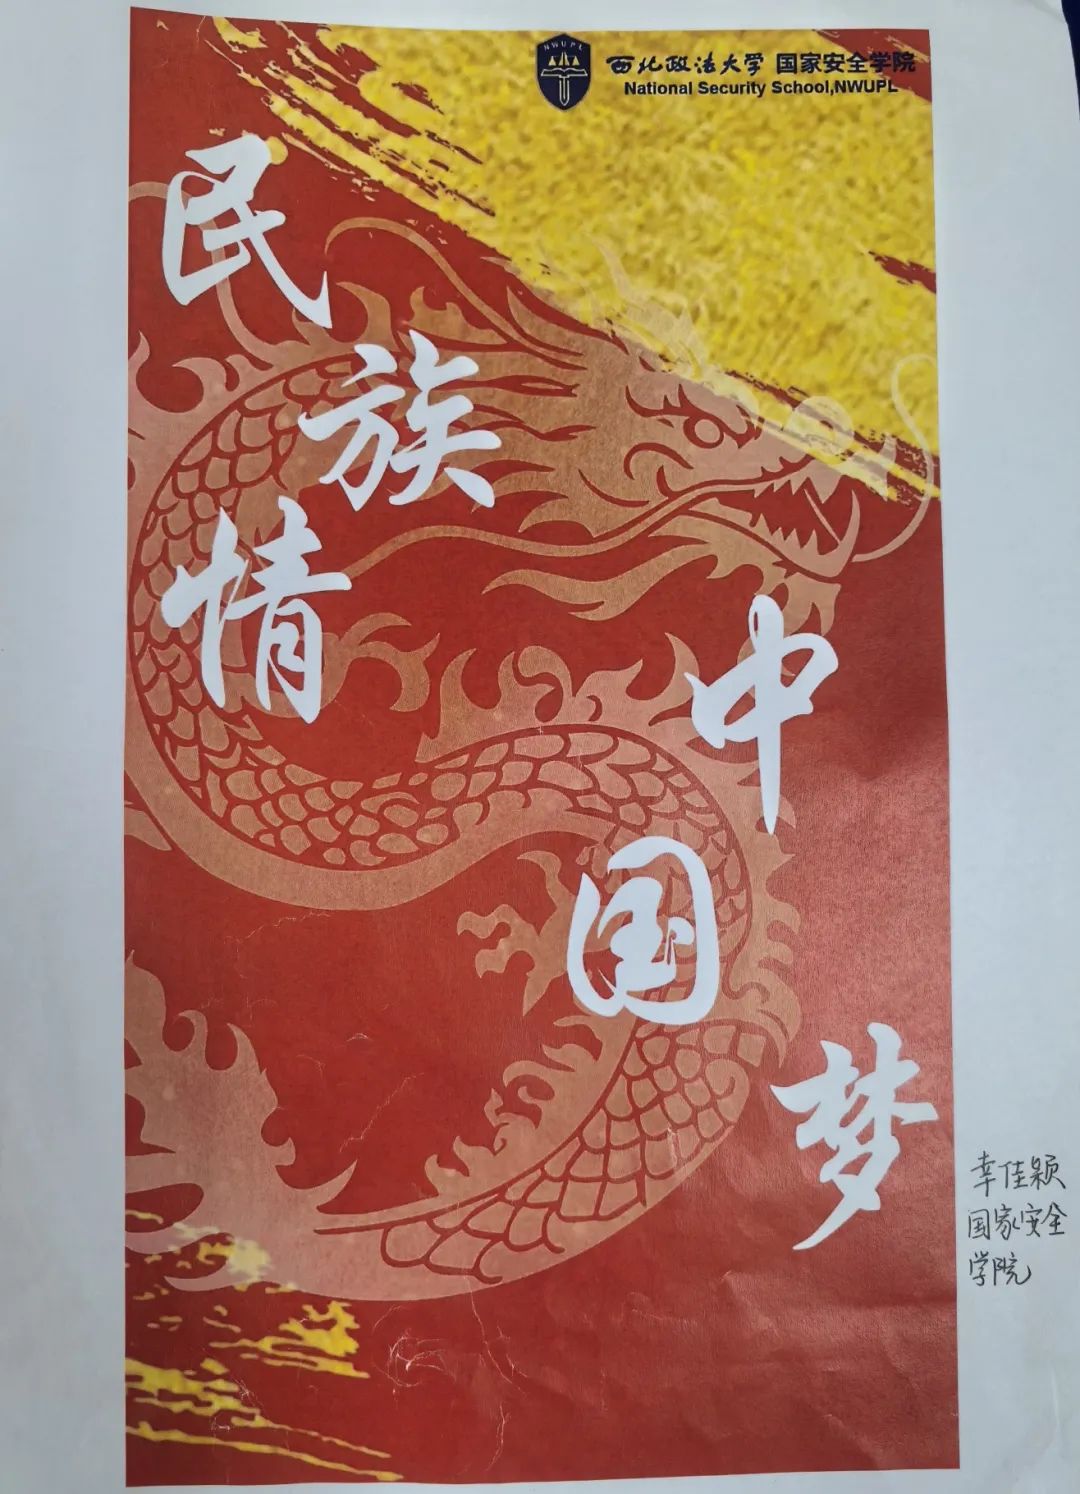 NWUPL
西北政法大学 国家安全学院
National Security School,NWUPL
民族情
中国梦
幸佳颖
国家安全
学院